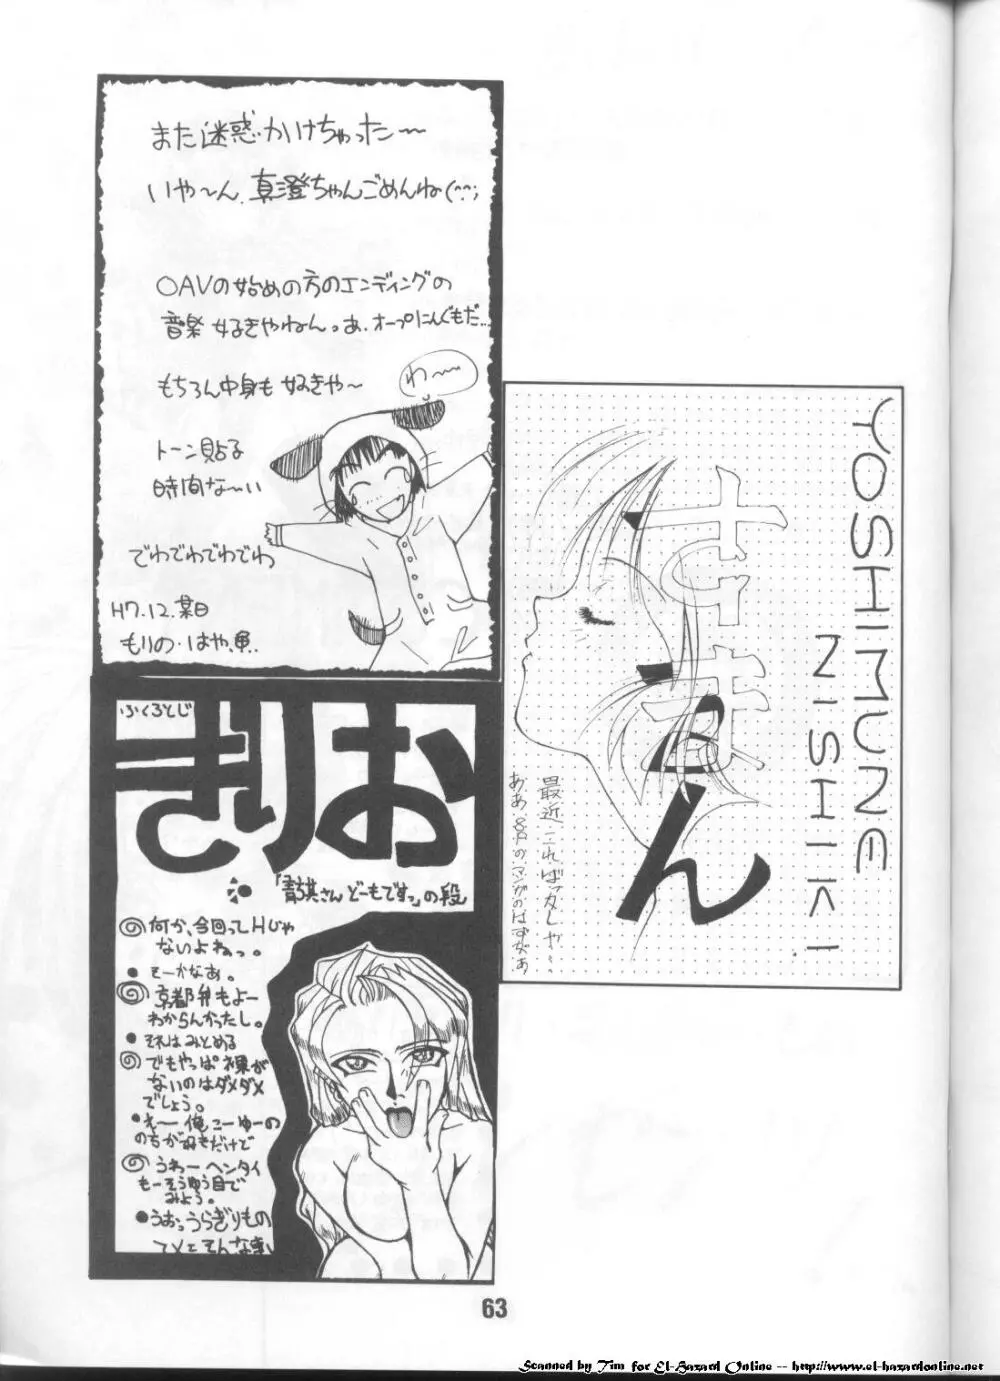 また迷惑かけちゃった〜
いや〜ん、真澄ちゃんごめんね(^^;
OAVの始めの方のエンディングの
音楽 好きやねん。あ、オープにんぐもだ…
もちろん中身も 好きや〜
わ〜
トーン貼る
時間な〜い
でわでわでわでわ
H7.12.某日
もりの・はや
YOSHIMUNE
NISHIKI
最近こればっかしや〜。
ああ 8Pのマンガのはずがぁ
ふくろとじ
おりき
さん どーもですっ」の段
何か、今回ってHじゃ
ないよねっ。
● そーかなぁ。
京都弁もよー
わからんかったし。
● それはみとめる
でもやっぱ裸が
ないのはダメダメ
でしょう。
●え〜 俺こーゆーの
のちが好きだけど
うわー ヘンタイ
もーそうゆう目で
みよう。
●うおっうらぎりもの
63
Scanned by Tim for El-Hazard Online -- http://www.el-hazardonline.net